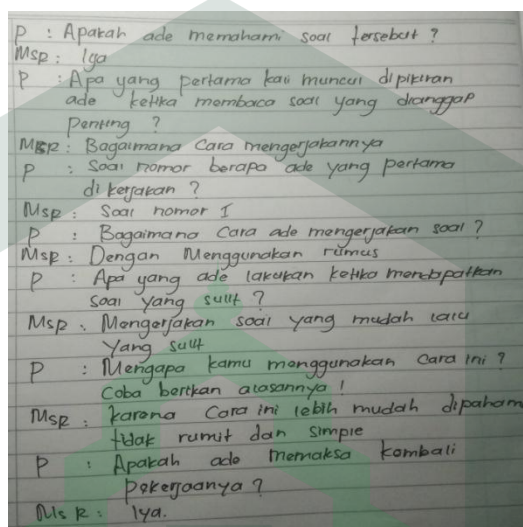 P : Apakah ade memahami soal tersebut ?
MSR : Iya
P : Apa yang pertama kali muncul dipikiran
ade ketika membaca soal yang dianggap
Penting ?
MSR : Bagaimana Cara mengerjakannya
P : Soal nomor berapa ade yang pertama
di kerjakan ?
MSR : Soal nomor I
P : Bagaimana Cara ade mengerjakan soal ?
MSR : Dengan Menggunakan rumus
P : Apa yang ade lakukan ketika mendapatkan
Soal yang sulit ?
MSR : Mengerjakan soal yang mudah lalu
Yang sulit
P : Mengapa kamu menggunakan Cara ini ?
Coba berikan alasannya !
MSR : karena Cara ini lebih mudah dipaham
tidak rumit dan simple
P : Apakah ade memaksa kembali
Pekerjaanya ?
MSR : Iya.